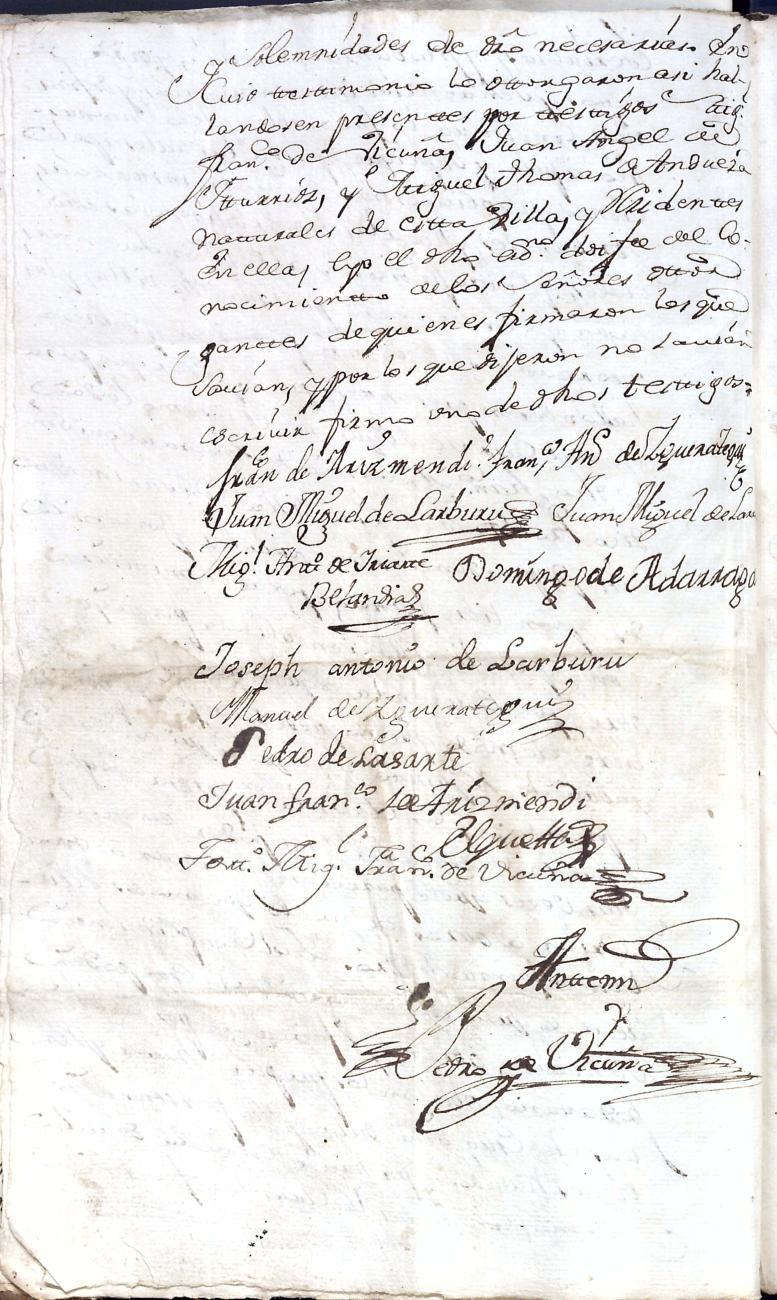 y Solemnidades de dro necesarias. En
Cuio testtimonio lo ottorgaron asi hal-
landosen presenttes por testtigos Mig.l
fran.co de Vicuña, Juan Angel de
Itturrioz, y Miguel Thomas de Andueza
natturales de estta Villa, y Residenttes
en ella, e yo el dho ess.no doi fe del Co-
nocimientto de los Señores ottor
ganttes de quienes firmaron los que
Savian, y por los que dijeron no Savian
escrivir firmo uno de dhos testtigos=
fran.co de Arizmendi fran.co An.o de Zguerategui
Juan Miguel de Larburu Juan Miguel de Lar
Mig.l Ant.o de Iriarte Domingo de Adarraga
Belandia
Joseph antonio de Larburu
Manuel de Zguerategui
Pedro de Lasarte
Juan fran.co de Arizmendi
Elguetta
Testt.o Mig.l Fran.co de Vicuña
Anttemi
Pedro de Vicuña